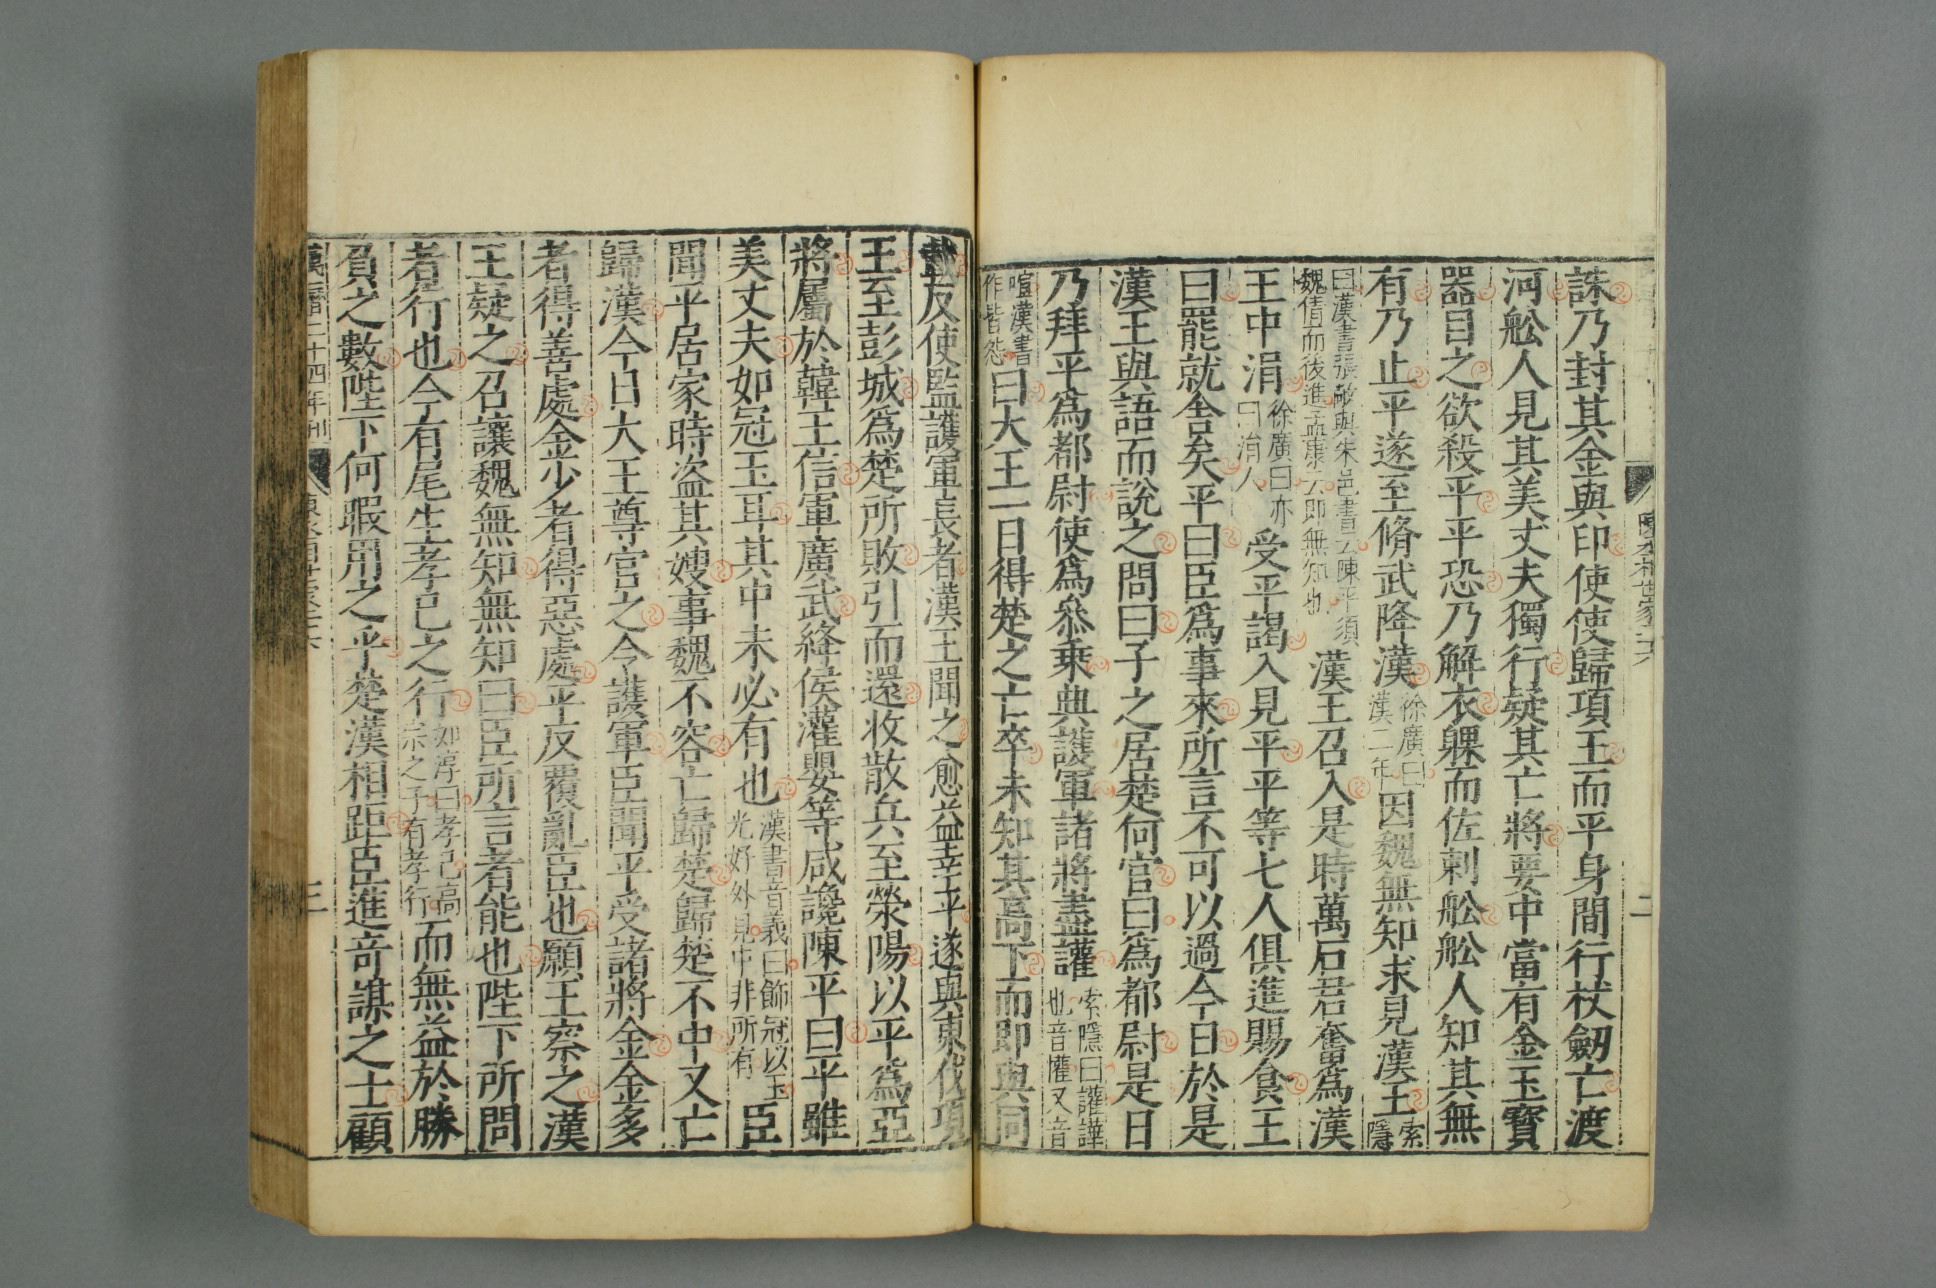 陳丞相世家二十六
二
誅乃封其金與印使使歸項王而平身間行杖劒亡渡
河舩人見其美丈夫獨行疑其亡將要中當有金玉寶
器目之欲殺平平恐乃解衣躶而佐刺舩舩人知其無
有乃止平遂至脩武降漢徐廣曰漢二年因魏無知求見漢王索隱
曰漢書張敞與朱邑書云陳平須魏倩而後進孟康云即無知也漢王召入是時萬石君奮爲漢
王中涓徐廣曰亦曰涓人受平謁入見平平等七人俱進賜食王
曰罷就舎矣平曰臣爲事來所言不可以過今日於是
漢王與語而說之問曰子之居楚何官曰爲都尉是日
乃拜平爲都尉使爲叅乗典護軍諸將盡讙索隱曰讙譁也音懽又音
喧漢書作皆怨曰大王一日得楚之亡卒未知其高下而即與同
載反使監護軍長者漢王聞之愈益幸平遂與東伐項
王至彭城爲楚所敗引而還收散兵至滎陽以平爲亞
將屬於韓王信軍廣武絳侯灌嬰等咸讒陳平曰平雖
美丈夫如冠玉耳其中未必有也漢書音義曰飾冠以玉光好外見中非所有臣
聞平居家時盗其嫂事魏不容亡歸楚歸楚不中又亡
歸漢今日大王尊官之令護軍臣聞平受諸將金金多
者得善處金少者得惡處平反覆亂臣也願王察之漢
王疑之召讓魏無知無知曰臣所言者能也陛下所問
者行也今有尾生孝己之行如淳曰孝己高宗之子有孝行而無益於勝
負之數陛下何暇用之乎楚漢相距臣進竒謀之士顧
萬曆二十四年刊
三